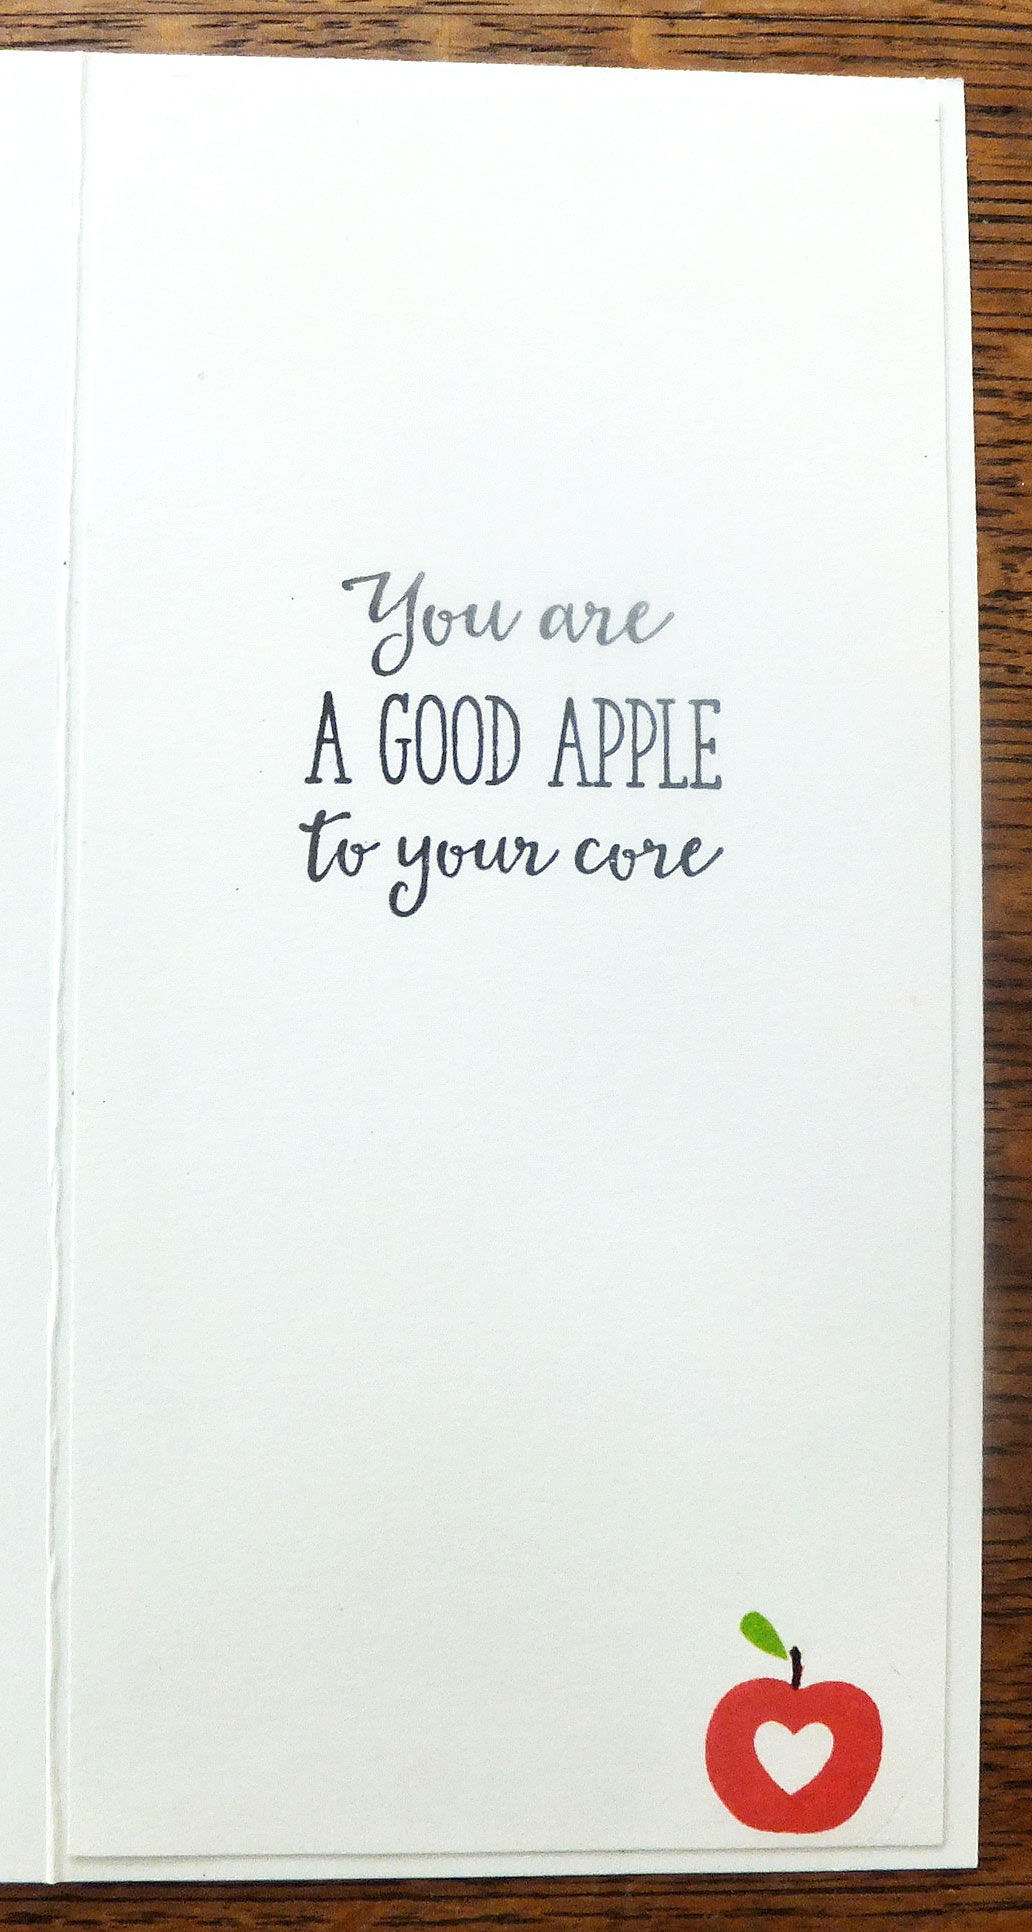 You are
A GOOD APPLE
to your core